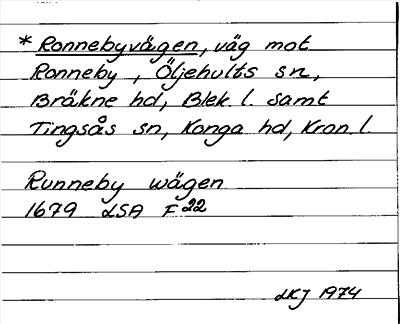 * Ronnebyvägen, väg mot
Ronneby, Öljehults sn,
Bräkne hd, Blek. l. samt
Tingsås sn, Konga hd, Kron. l.
Runneby wägen
1679 LSA F22
LKJ 1974